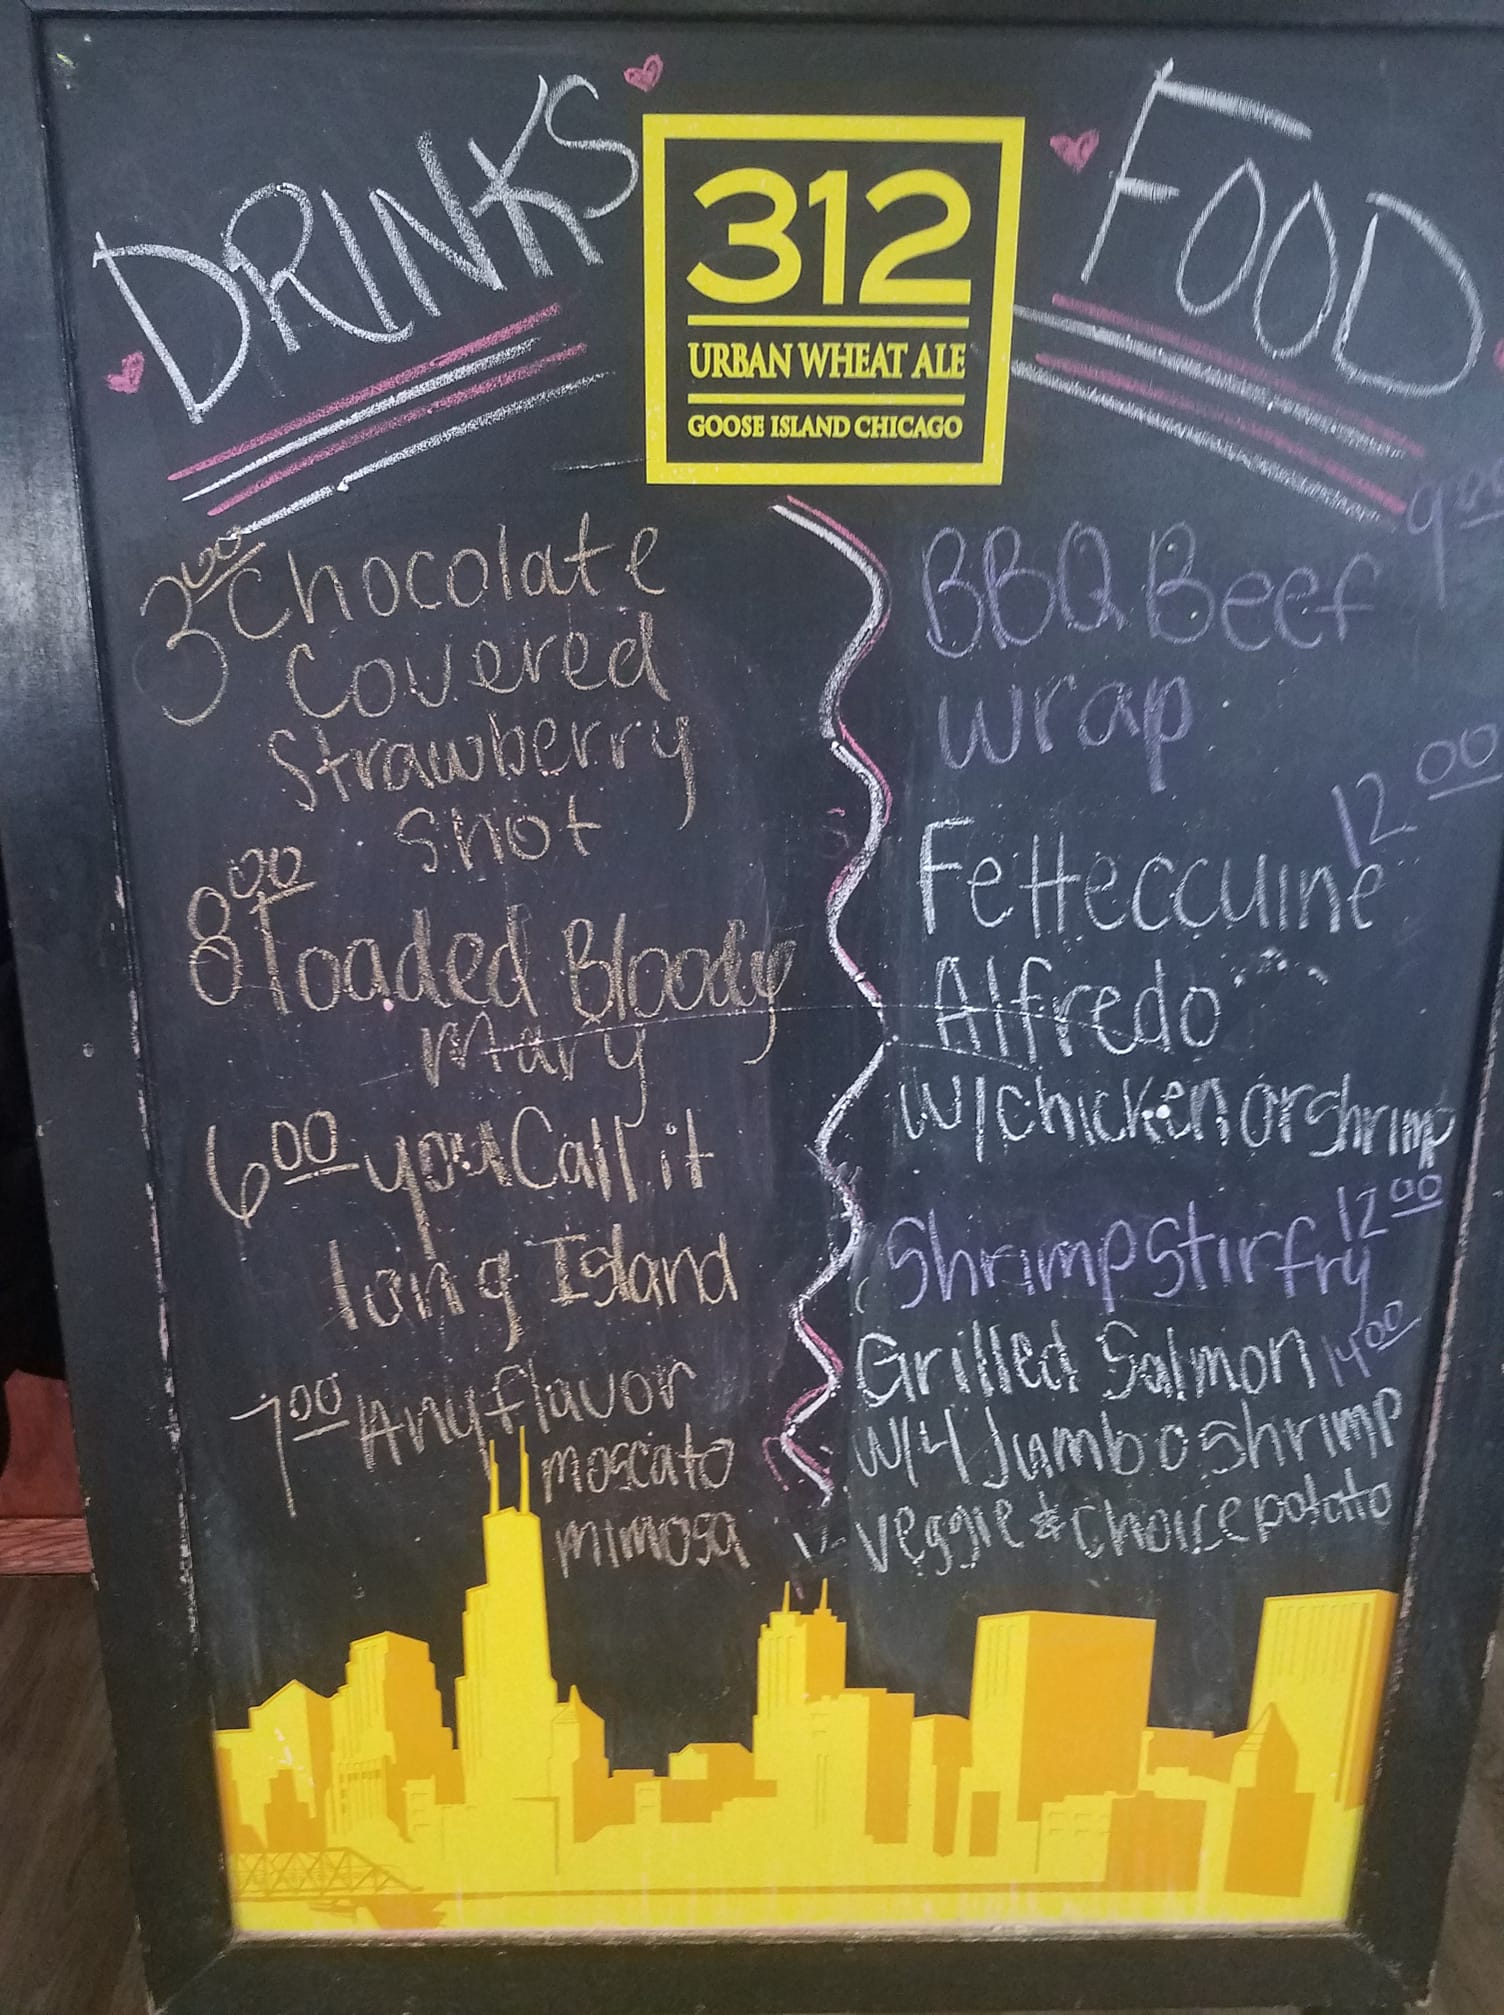 DRINKS
312
URBAN WHEAT ALE
GOOSE ISLAND CHICAGO
FOOD
3.00 Chocolate
Covered
Strawberry
Shot
8.00 Loaded Bloody
Mary
6.00 you Call it
long Island
7.00 Any flavor
moscato
mimosa
9.00
BBQ Beef
wrap
12.00
Fetteccuine
Alfredo
w/chicken or shrimp
12.00
Shrimp Stir fry
Grilled Salmon 14.00
w/4 Jumbo Shrimp
veggie & choice potato